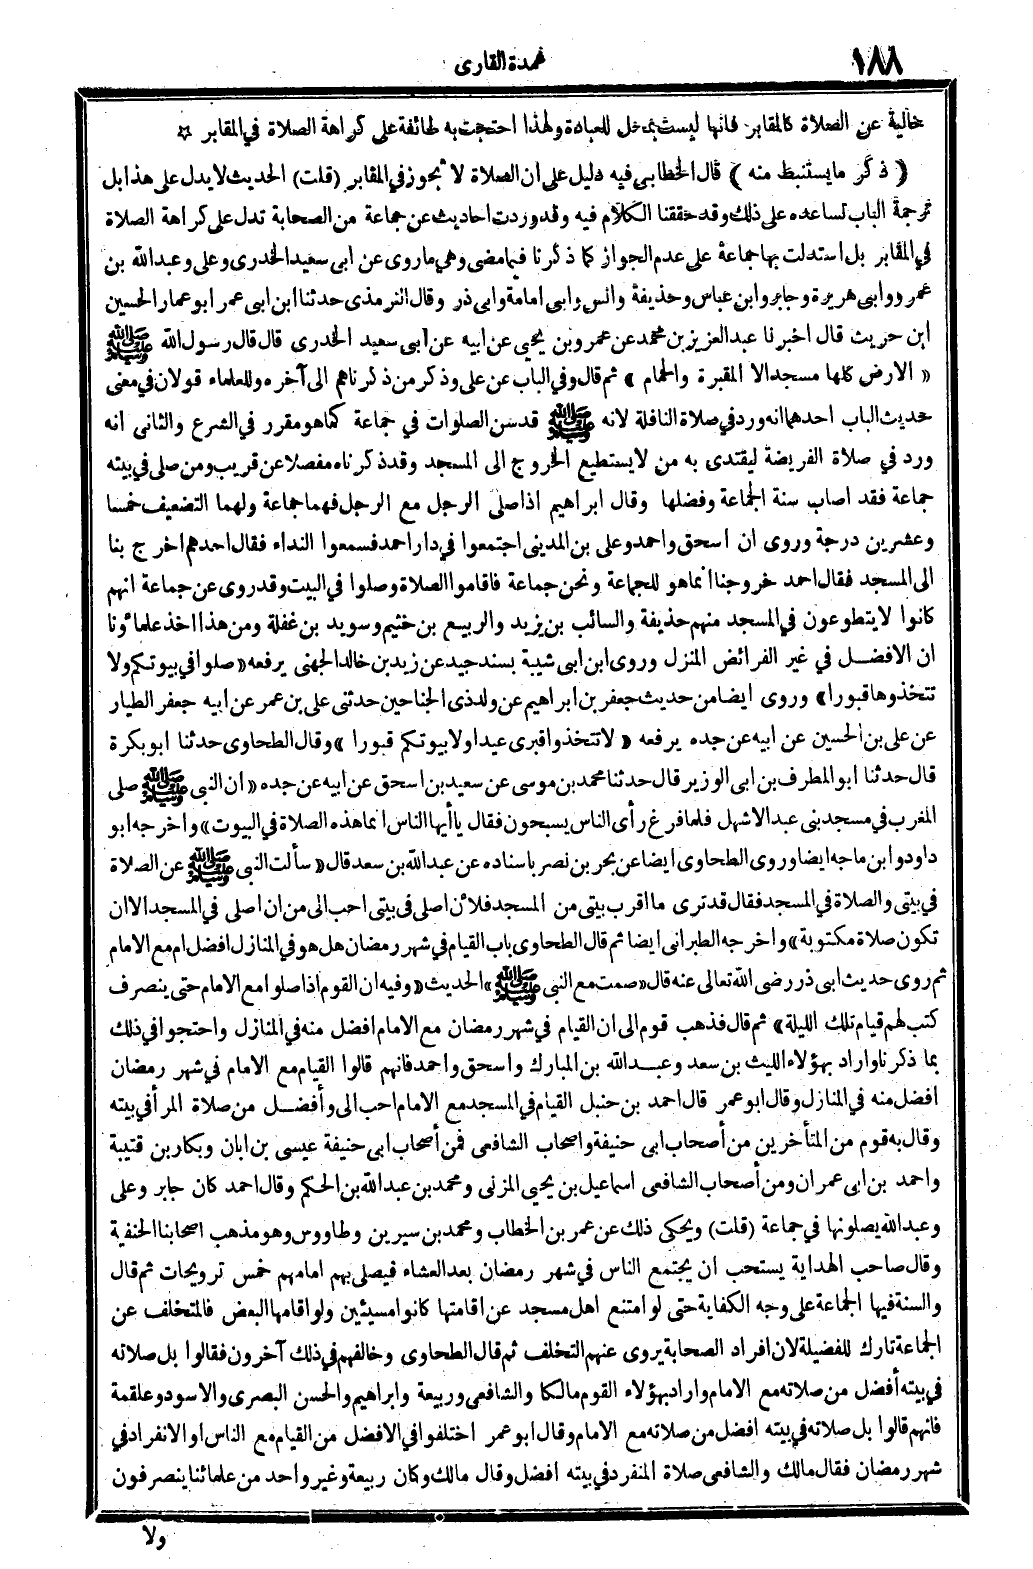 ١٨٨
عمدة القارى
خالية عن الصلاة كالمقابر فانها ليست بمحل للعبادة ولهذا احتجت به طائفة على كراهة الصلاة في المقابر ☆
﴿ ذكر ما يستنبط منه ﴾ قال الخطابى فيه دليل على ان الصلاة لا تجوز في المقابر (قلت) الحديث لا يدل على هذا بل
ترجمة الباب تساعده على ذلك وقد حققنا الكلام فيه وقد وردت احاديث عن جماعة من الصحابة تدل على كراهة الصلاة
في المقابر بل استدلت بها جماعة على عدم الجواز كما ذكرنا فيما مضى وهي ما روى عن ابى سعيد الخدرى وعلى وعبد الله بن
عمرو وابى هريرة وجابر وابن عباس وحذيفة وانس وابى امامة وابى ذر وقال الترمذى حدثنا ابن ابى عمر ابو عمار الحسين
ابن حريث قال اخبرنا عبد العزيز بن محمد عن عمرو بن يحيى عن ابيه عن ابى سعيد الخدرى قال قال رسول الله ﷺ
« الارض كلها مسجد الا المقبرة والحمام » ثم قال وفي الباب عن على وذكر من ذكرناهم الى آخره وللعلماء قولان في معنى
حديث الباب احدهما انه ورد في صلاة النافلة لانه ﷺ قد سن الصلوات في جماعة كما هو مقرر في الشرع والثانى انه
ورد في صلاة الفريضة ليقتدى به من لا يستطيع الخروج الى المسجد وقد ذكرناه مفصلا عن قريب ومن صلى في بيته
جماعة فقد اصاب سنة الجماعة وفضلها وقال ابراهيم اذا صلى الرجل مع الرجل فهما جماعة ولهما التضعيف خمسا
وعشرين درجة وروى ان اسحق واحمد وعلى بن المدينى اجتمعوا في دار احمد فسمعوا النداء فقال احدهم اخرج بنا
الى المسجد فقال احمد خروجنا انما هو للجماعة ونحن جماعة فاقاموا الصلاة وصلوا في البيت وقد روى عن جماعة انهم
كانوا لا يتطوعون في المسجد منهم حذيفة والسائب بن يزيد والربيع بن خثيم وسويد بن غفلة ومن هذا اخذ علماؤنا
ان الافضل في غير الفرائض المنزل وروى ابن ابى شيبة بسند جيد عن زيد بن خالد الجهنى يرفعه «صلوا في بيوتكم ولا
تتخذوها قبورا» وروى ايضا من حديث جعفر بن ابراهيم عن ولد ذى الجناحين حدثنى على بن عمر عن ابيه جعفر الطيار
عن على بن الحسين عن ابيه عن جده يرفعه « لا تتخذوا قبرى عيدا ولا بيوتكم قبورا » وقال الطحاوى حدثنا ابو بكرة
قال حدثنا ابو المطرف بن ابى الوزير قال حدثنا محمد بن موسى عن سعيد بن اسحق عن ابيه عن جده « ان النبى ﷺ صلى
المغرب في مسجد بنى عبد الاشهل فلما فرغ رأى الناس يسبحون فقال يا أيها الناس انما هذه الصلاة في البيوت» واخرجه ابو
داود وابن ماجه ايضا وروى الطحاوى ايضا عن بحر بن نصر باسناده عن عبد الله بن سعد قال «سألت النبى ﷺ عن الصلاة
في بيتى والصلاة في المسجد فقال قد ترى ما اقرب بيتى من المسجد فلأن اصلى فى بيتى احب الى من ان اصلى في المسجد الا ان
تكون صلاة مكتوبة» واخرجه الطبرانى ايضا ثم قال الطحاوى باب القيام في شهر رمضان هل هو في المنازل افضل ام مع الامام
ثم روى حديث ابى ذر رضى الله تعالى عنه قال «صمت مع النبى ﷺ» الحديث «وفيه ان القوم اذا صلوا مع الامام حتى ينصرف
كتب لهم قيام تلك الليلة» ثم قال فذهب قوم الى ان القيام في شهر رمضان مع الامام افضل منه في المنازل واحتجوا في ذلك
بما ذكرنا واراد بهؤلاء الليث بن سعد وعبد الله بن المبارك واسحق واحمد فانهم قالوا القيام مع الامام في شهر رمضان
افضل منه في المنازل وقال ابو عمر قال احمد بن حنبل القيام في المسجد مع الامام احب الى وأفضل من صلاة المرأ في بيته
وقال به قوم من المتأخرين من أصحاب ابى حنيفة واصحاب الشافعى فمن أصحاب ابى حنيفة عيسى بن ابان وبكار بن قتيبة
واحمد بن ابى عمران ومن أصحاب الشافعى اسماعيل بن يحيى المزنى ومحمد بن عبد الله بن الحكم وقال احمد كان جابر وعلى
وعبد الله يصلونها في جماعة (قلت) ويحكى ذلك عن عمر بن الخطاب ومحمد بن سيرين وطاووس وهو مذهب اصحابنا الحنفية
وقال صاحب الهداية يستحب ان يجتمع الناس في شهر رمضان بعد العشاء فيصلى بهم امامهم خمس ترويحات ثم قال
والسنة فيها الجماعة على وجه الكفاية حتى لو امتنع اهل مسجد عن اقامتها كانوا مسيئين ولو اقامها البعض فالمتخلف عن
الجماعة تارك للفضيلة لان افراد الصحابة يروى عنهم التخلف ثم قال الطحاوى وخالفهم في ذلك آخرون فقالوا بل صلاته
في بيته أفضل من صلاته مع الامام واراد بهؤلاء القوم مالكا والشافعى وربيعة وابراهيم والحسن البصرى والاسود وعلقمة
فانهم قالوا بل صلاته في بيته افضل من صلاته مع الامام وقال ابو عمر اختلفوا في الافضل من القيام مع الناس او الانفراد في
شهر رمضان فقال مالك والشافعى صلاة المنفرد في بيته افضل وقال مالك وكان ربيعة وغير واحد من علمائنا ينصرفون
ولا